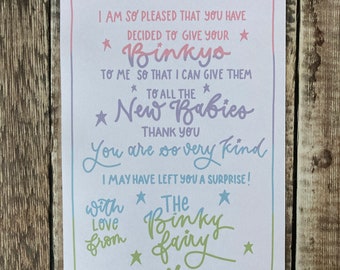 I AM SO PLEASED THAT YOU HAVE
DECIDED TO GIVE YOUR
Binkys
TO ME SO THAT I CAN GIVE THEM
TO ALL THE
New Babies
THANK YOU
You are so very kind
I MAY HAVE LEFT YOU A SURPRISE!
with LOVE from
THE
Binky
fairy